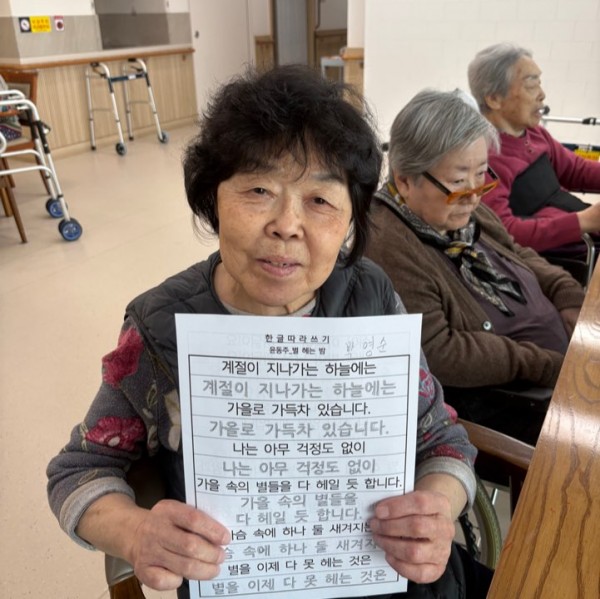 한글따라쓰기
윤동주_별 헤는 밤
박영순
계절이 지나가는 하늘에는
계절이 지나가는 하늘에는
가을로 가득차 있습니다.
가을로 가득차 있습니다.
나는 아무 걱정도 없이
나는 아무 걱정도 없이
가을 속의 별들을 다 헤일 듯 합니다.
가을 속의 별들을
다 헤일 듯 합니다.
가슴 속에 하나 둘 새겨지는
가슴 속에 하나 둘 새겨지는
별을 이제 다 못 헤는 것은
별을 이제 다 못 헤는 것은